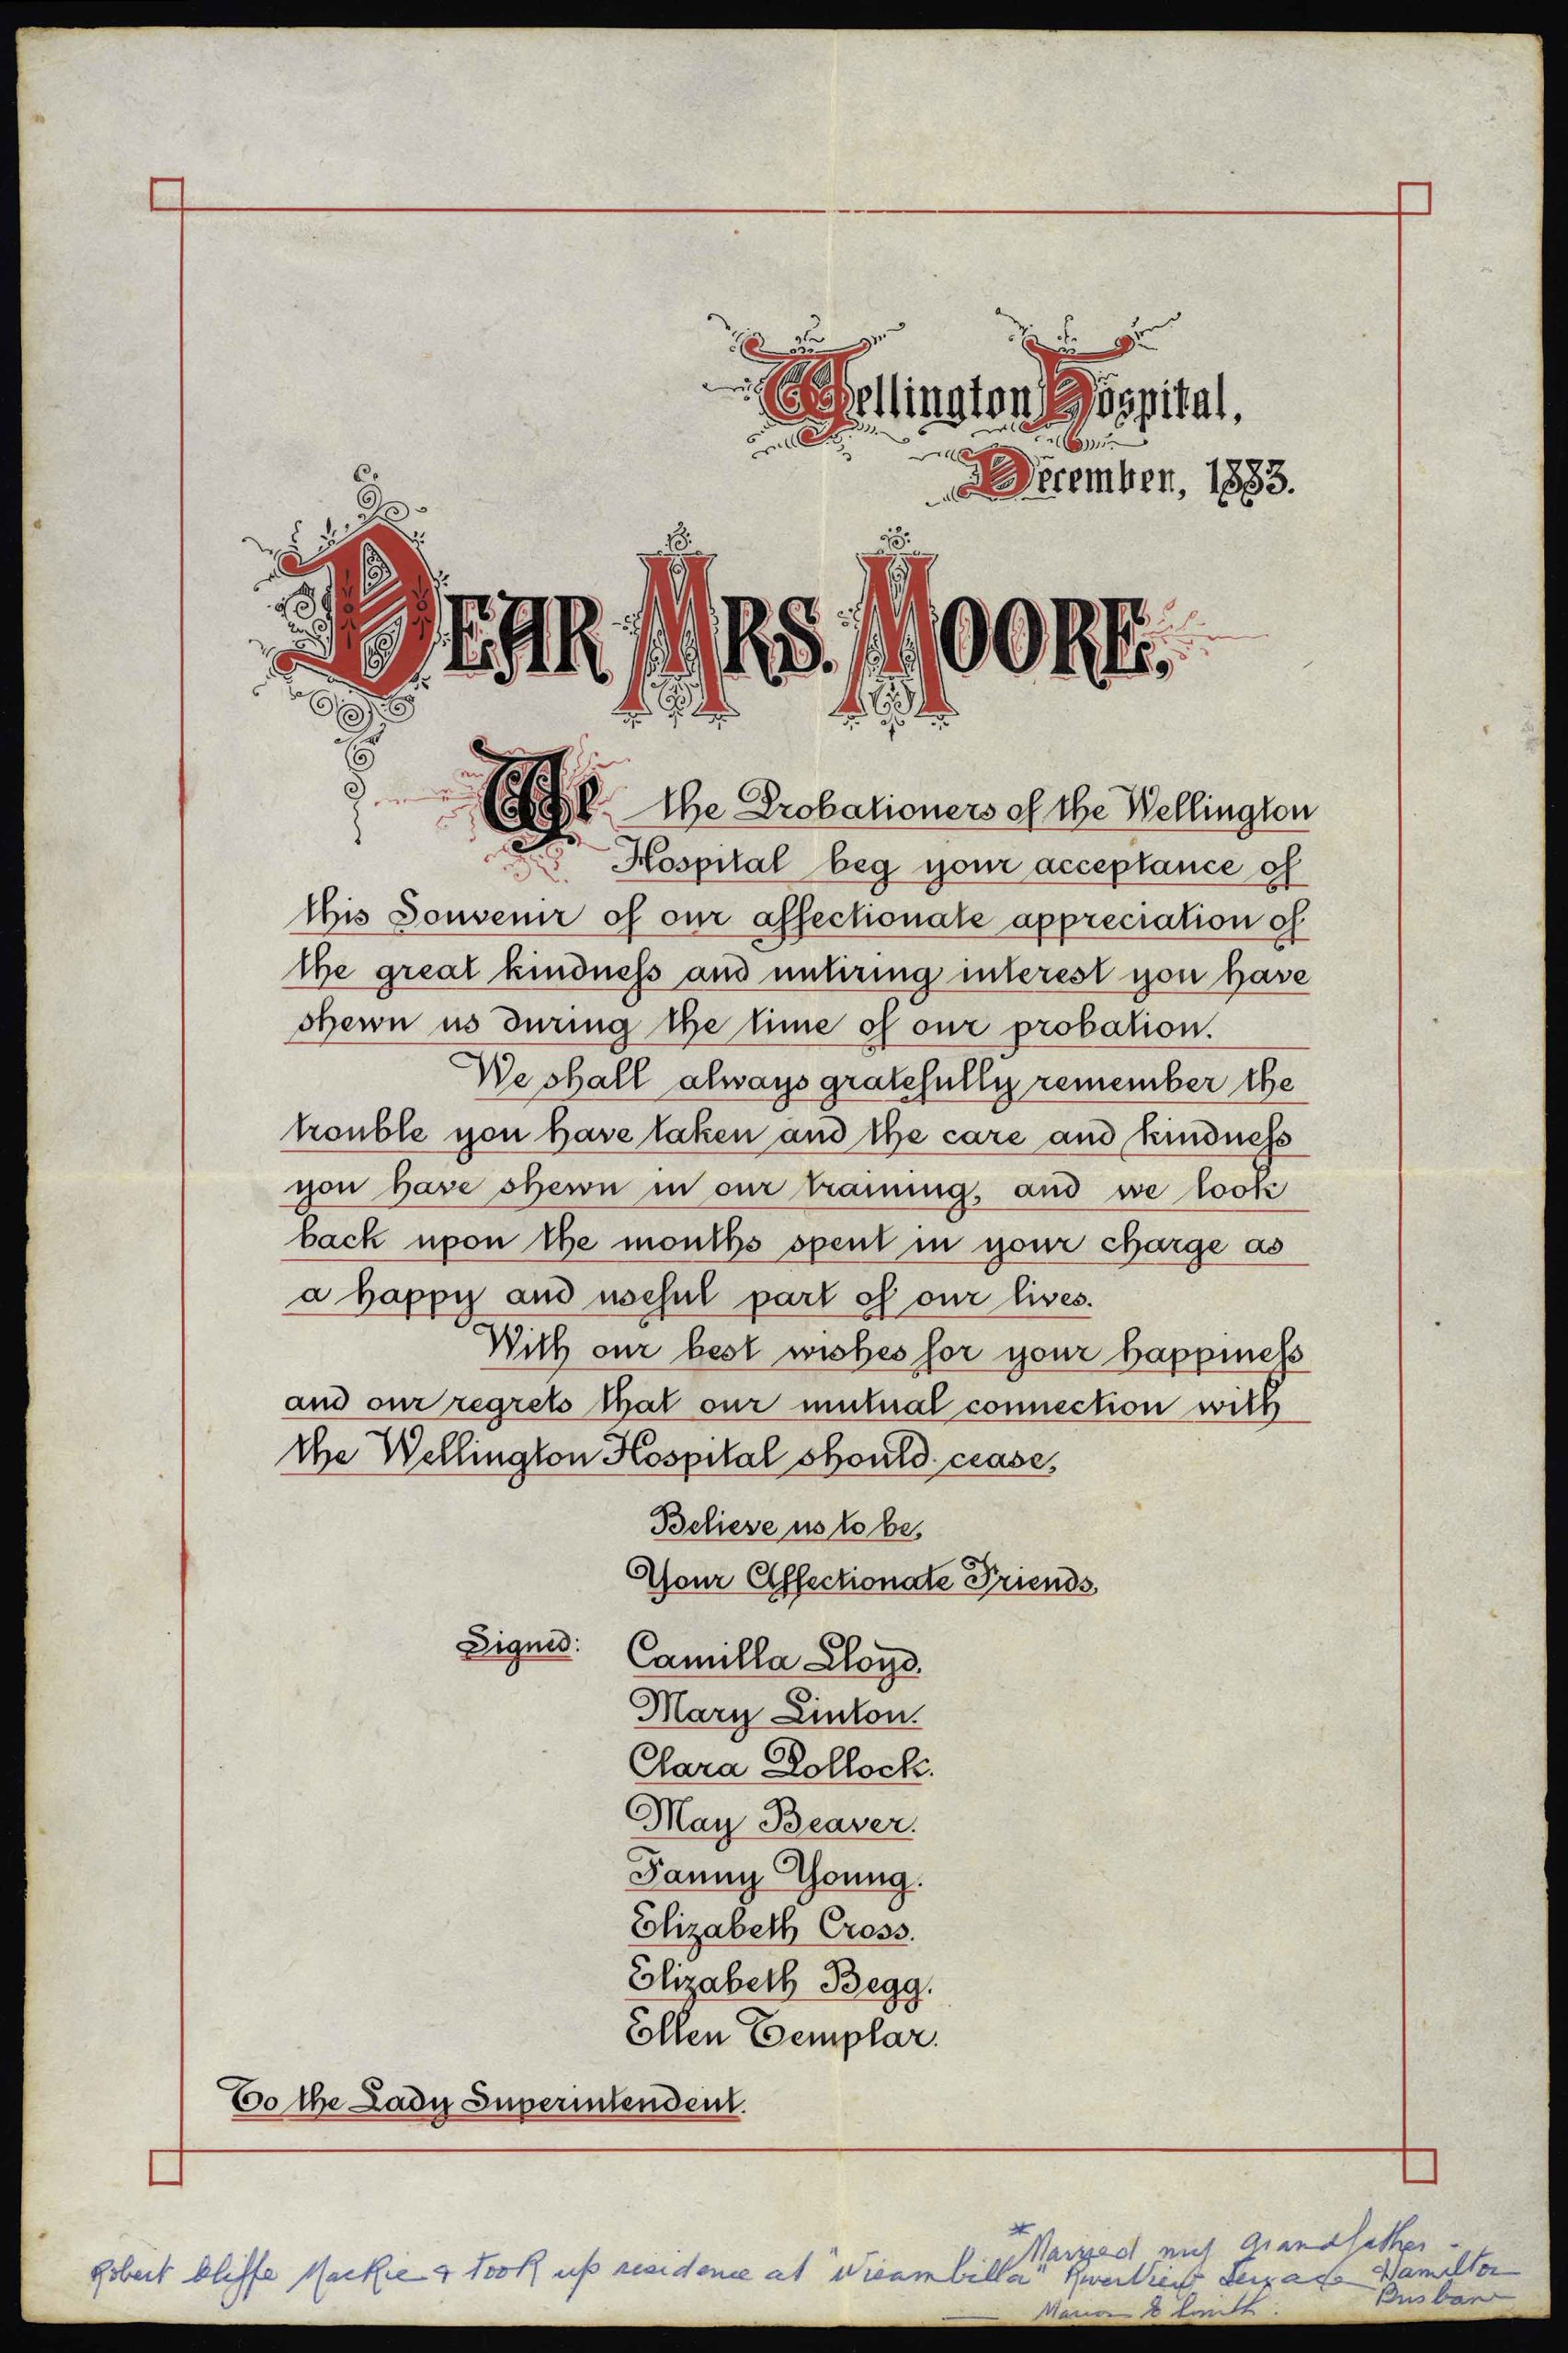 Wellington Hospital,
December, 1883.
DEAR MRS. MOORE,
We the Probationers of the Wellington
Hospital beg your acceptance of
this Souvenir of our affectionate appreciation of
the great kindneſs and untiring interest you have
shewn us during the time of our probation.
We shall always gratefully remember the
trouble you have taken and the care and kindneſs
you have shewn in our training, and we look
back upon the months spent in your charge as
a happy and useful part of our lives.
With our best wishes for your happineſs
and our regrets that our mutual connection with
the Wellington Hospital should cease,
Believe us to be,
Your Affectionate Friends,
Signed: Camilla Lloyd.
Mary Linton.
Clara Pollock.
May Beaver.
Fanny Young.
Elizabeth Cross.
Elizabeth Begg.
Ellen Templar.
To the Lady Superintendent.
*Married my Grandfather -
Robert Cliffe Mackie & took up residence at "Wieambilla" Riverview Terrace Hamilton
Brisbane
Marion E Smith.